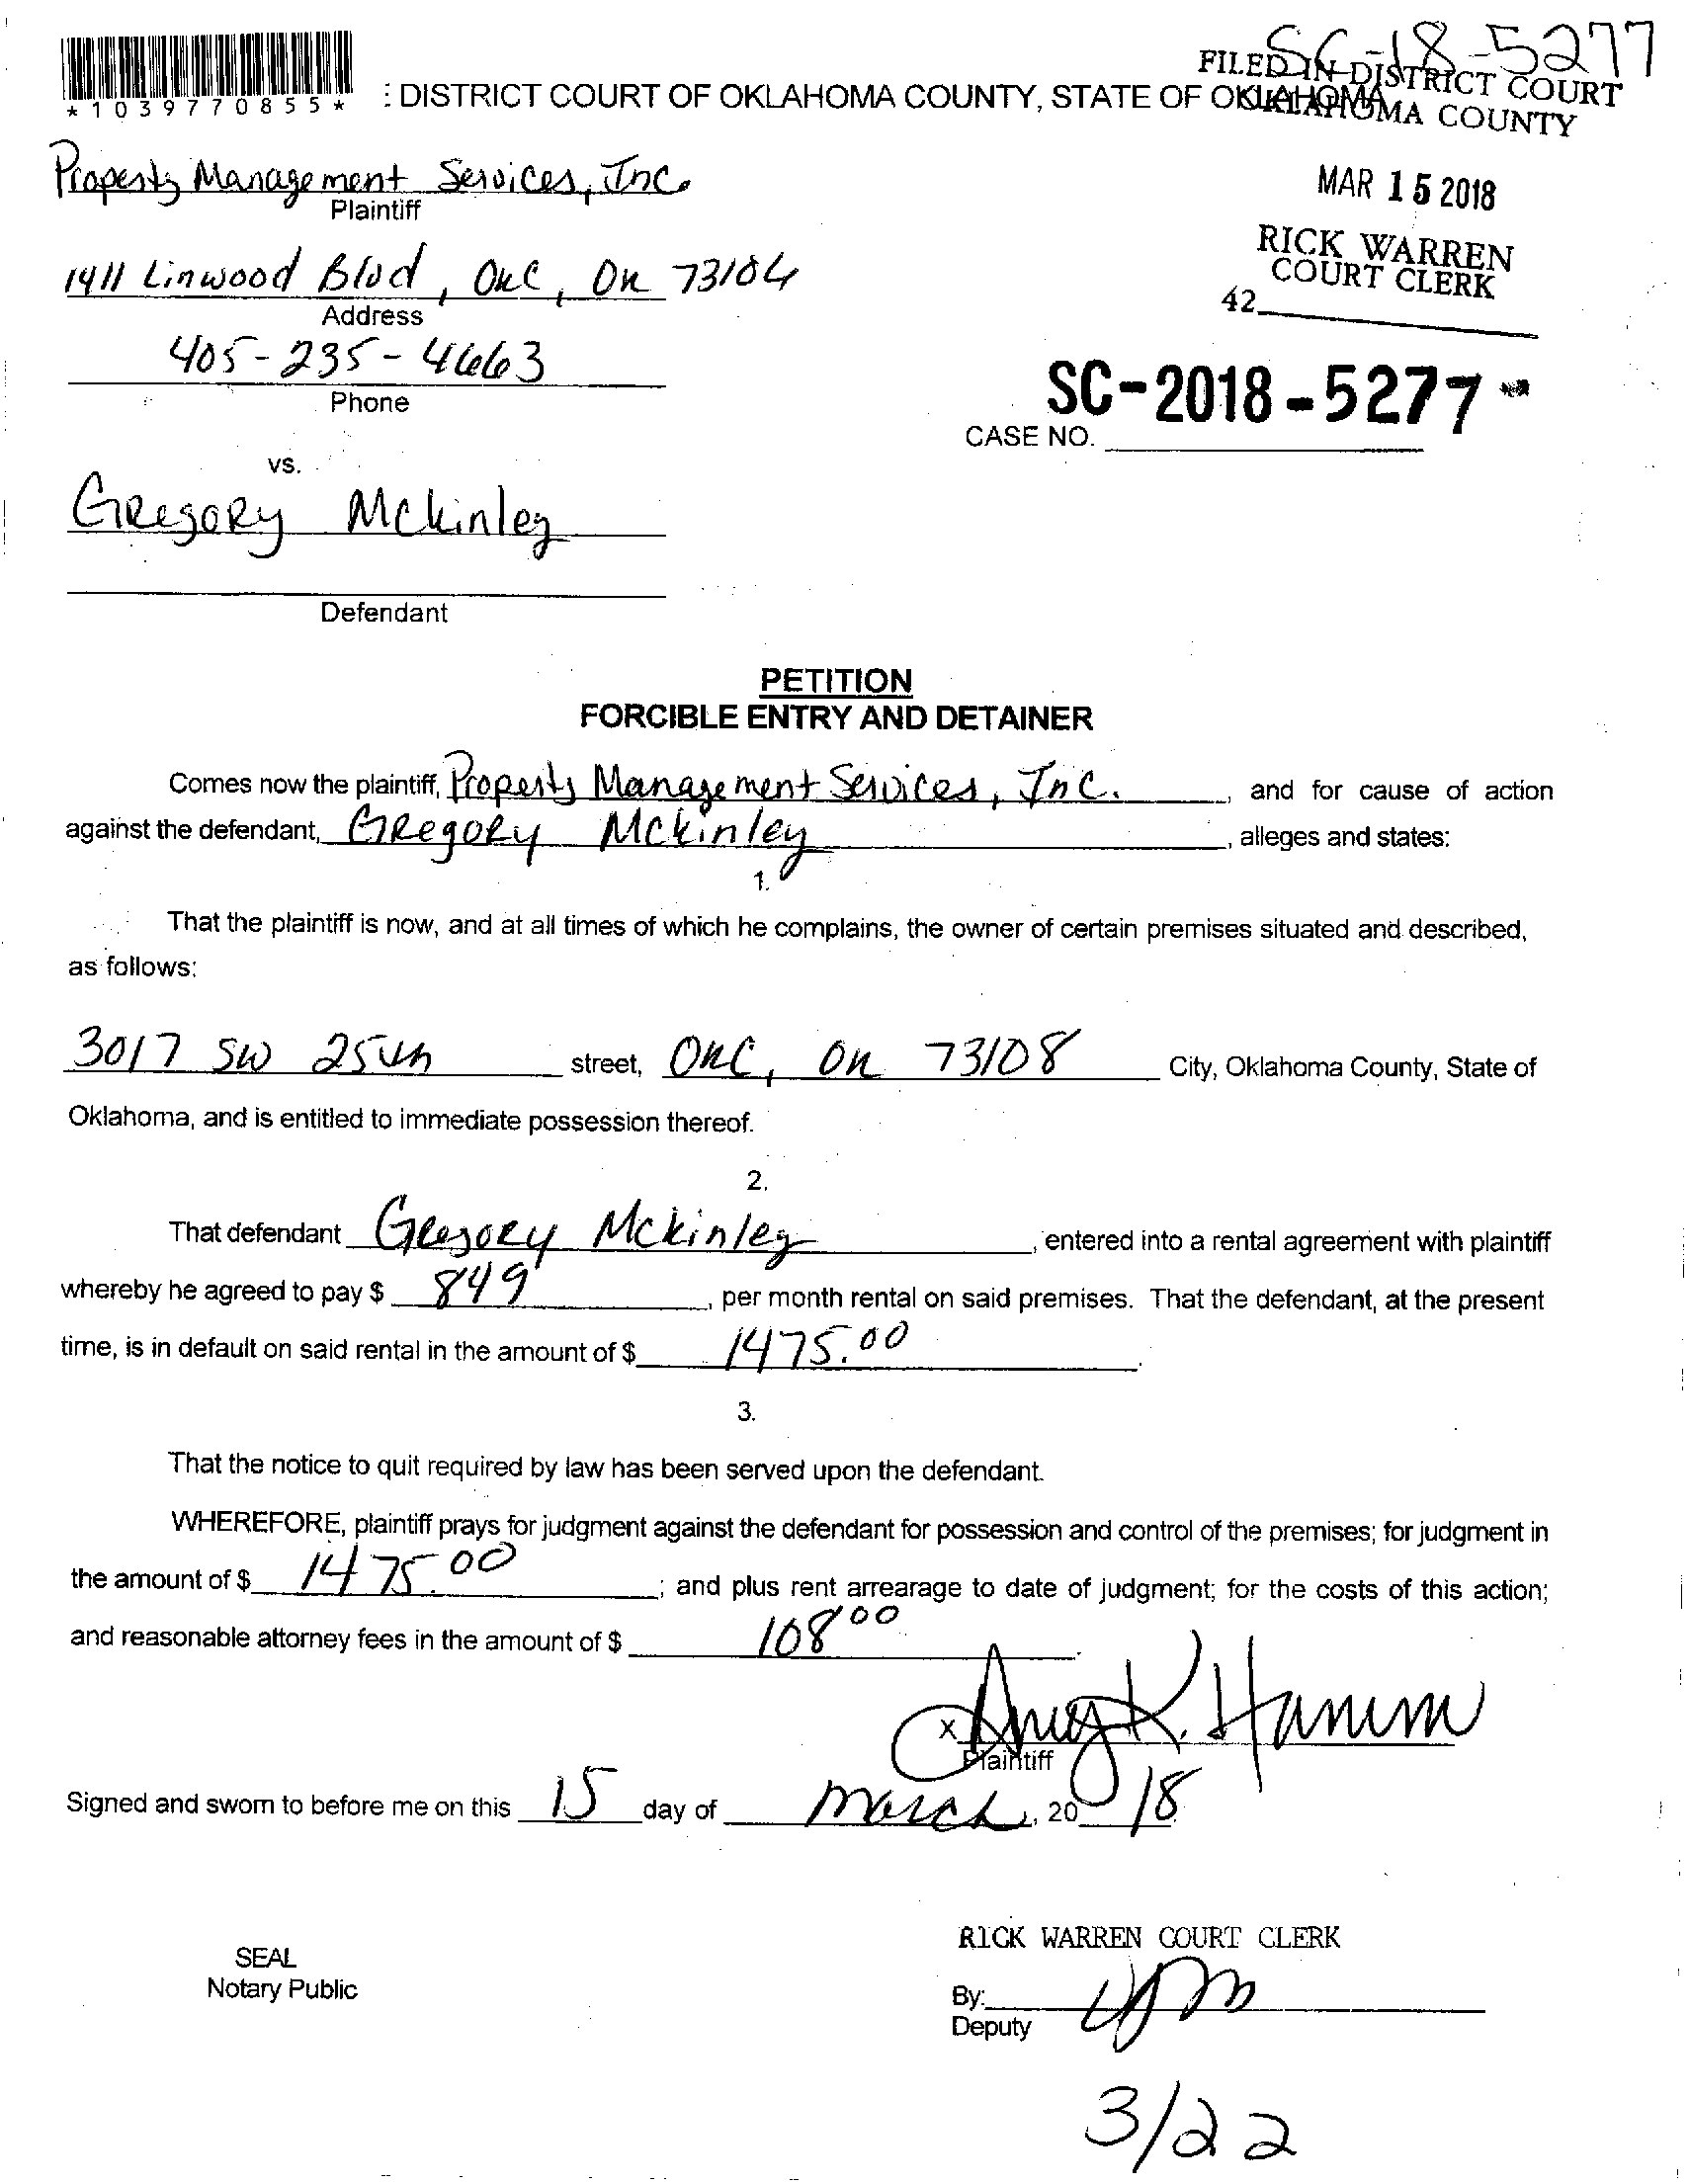 SC-18-5277
FILED IN DISTRICT COURT
OKLAHOMA COUNTY
*1039770855*
: DISTRICT COURT OF OKLAHOMA COUNTY, STATE OF OKLAHOMA
Property Management Services, Inc.
Plaintiff
MAR 15 2018
RICK WARREN
COURT CLERK
42
1411 Linwood Blvd, OKC, OK 73104
Address
405-235-4663
Phone
SC-2018-5277
CASE NO.
vs.
Gregory Mckinley
Defendant
PETITION
FORCIBLE ENTRY AND DETAINER
Comes now the plaintiff, Property Management Services, Inc. , and for cause of action
against the defendant, Gregory Mckinley , alleges and states:
1.
That the plaintiff is now, and at all times of which he complains, the owner of certain premises situated and described,
as follows:
3017 SW 25th street, OKC, OK 73108 City, Oklahoma County, State of
Oklahoma, and is entitled to immediate possession thereof.
2.
That defendant Gregory Mckinley , entered into a rental agreement with plaintiff
whereby he agreed to pay $ 849 , per month rental on said premises. That the defendant, at the present
time, is in default on said rental in the amount of $ 1475.00 .
3.
That the notice to quit required by law has been served upon the defendant.
WHEREFORE, plaintiff prays for judgment against the defendant for possession and control of the premises; for judgment in
the amount of $ 1475.00 ; and plus rent arrearage to date of judgment; for the costs of this action;
and reasonable attorney fees in the amount of $ 108.00 .
x Amy K. Hamm
Plaintiff
Signed and sworn to before me on this 15 day of March, 20 18.
RICK WARREN COURT CLERK
SEAL
Notary Public
By:
Deputy
3/22